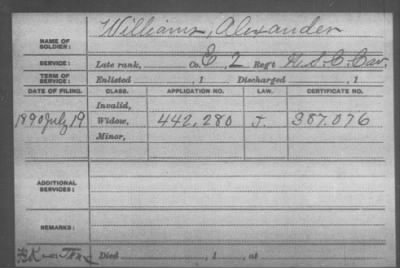 NAME OF SOLDIER: Williams, Alexander
SERVICE: Late rank, Co. E, 2 Reg't U.S.C. Cav.
TERM OF SERVICE: Enlisted , 1 Discharged , 1
DATE OF FILING. CLASS. APPLICATION NO. LAW. CERTIFICATE NO.
Invalid,
1890 July 19 Widow, 442,280 J. 387,076
Minor,
ADDITIONAL SERVICES:
REMARKS:
Died , 1 , at